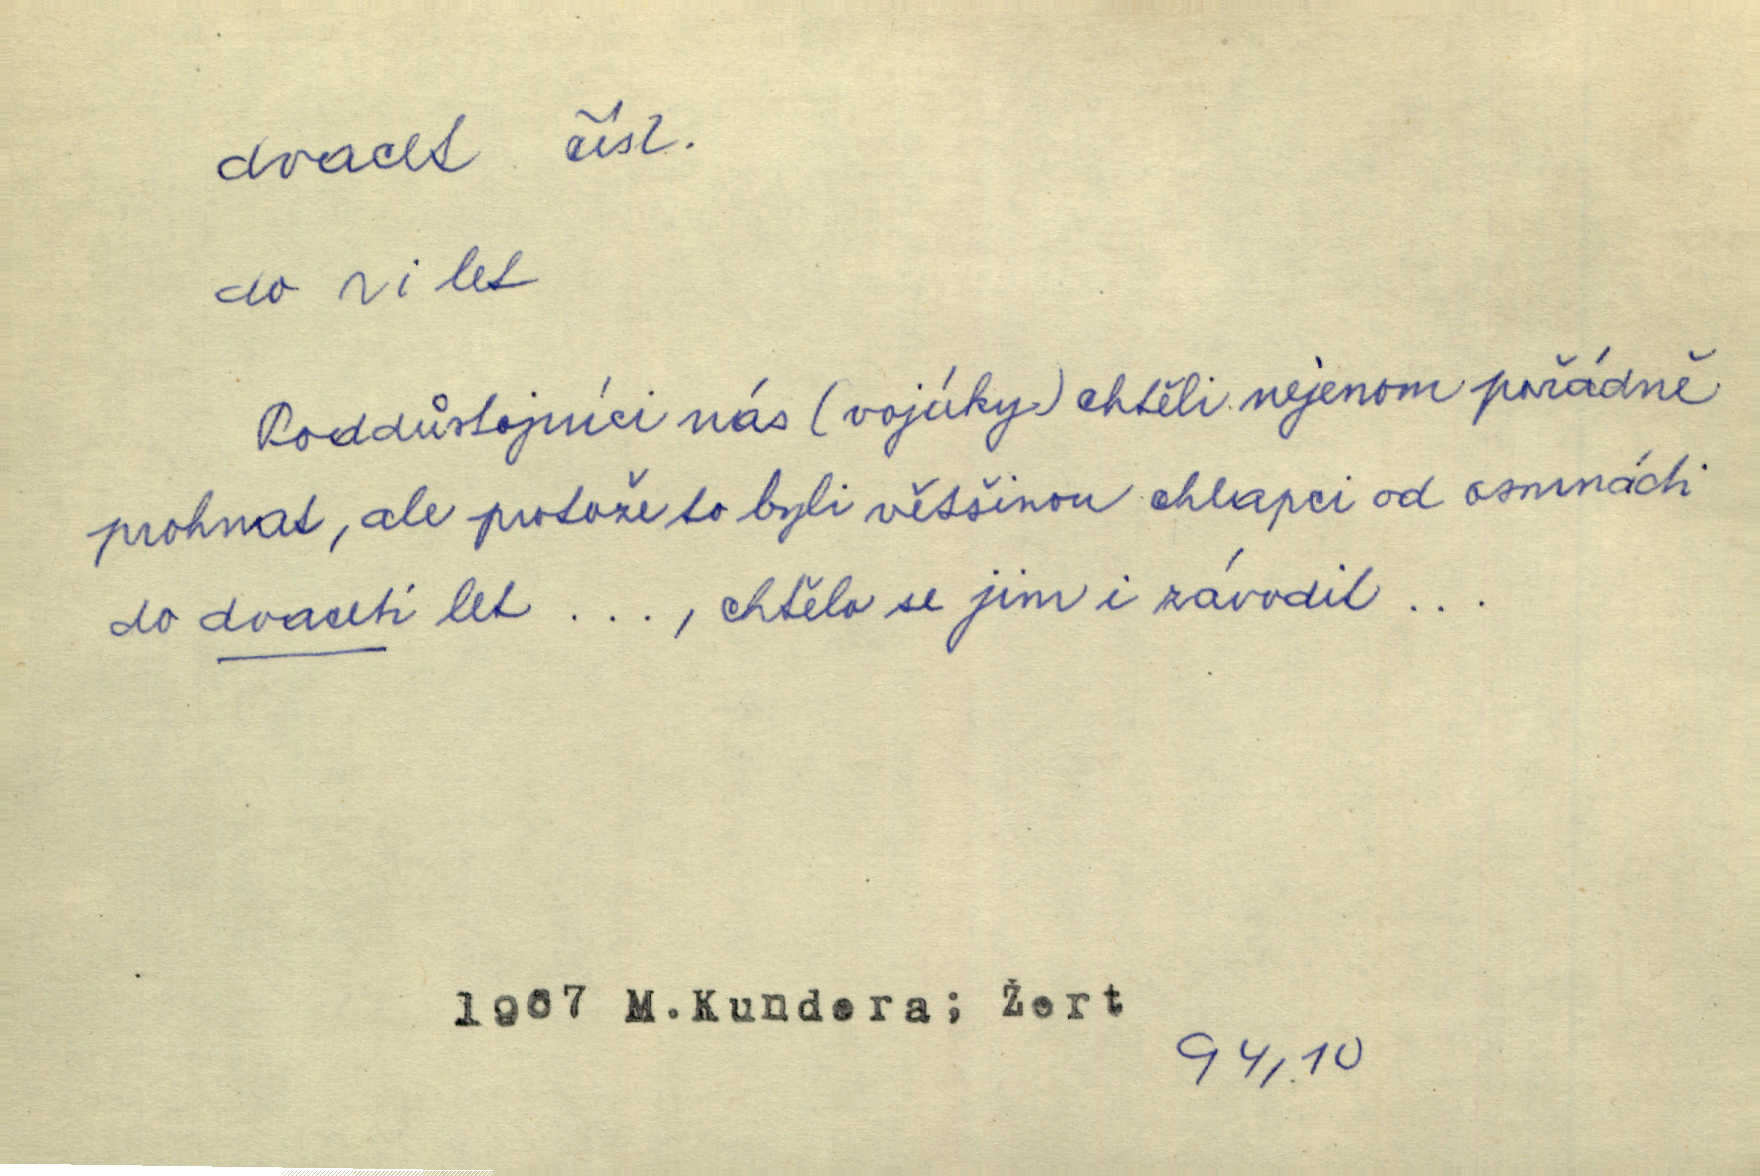 dvacet čísl.
do ~i let
Poddůstojníci nás (vojáky) chtěli nejenom pořádně
prohnat, ale protože to byli většinou chlapci od osmnácti
do dvaceti let ..., chtělo se jim i závodit ...
1967 M.Kundera; Žert
94,10